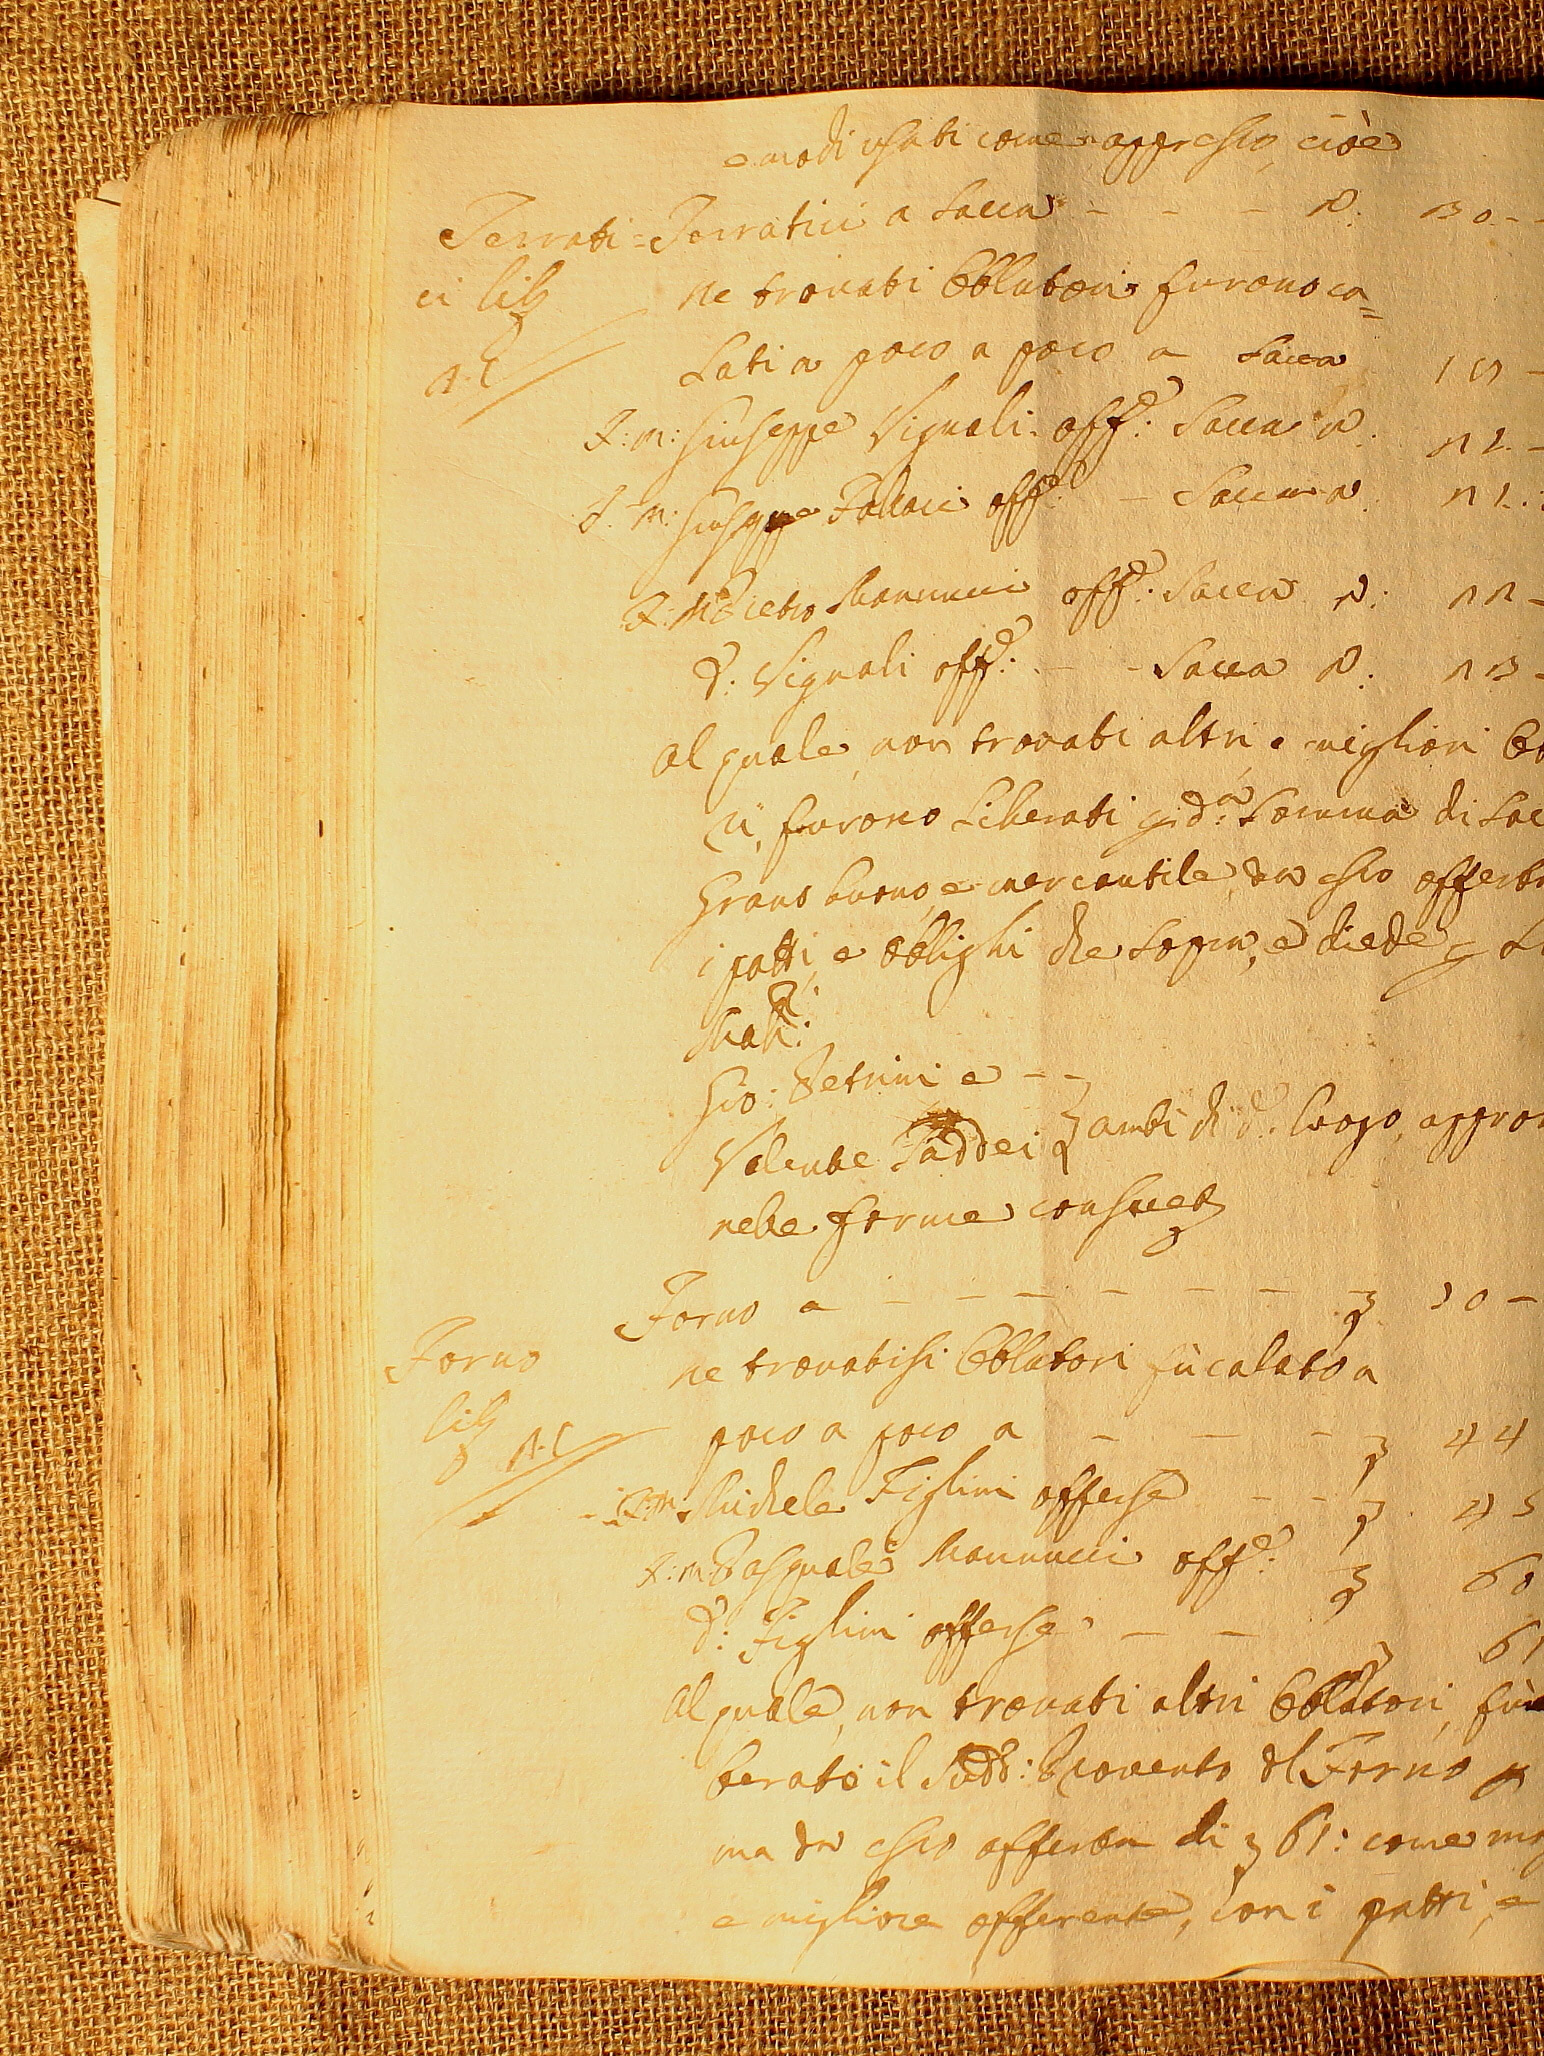 e modi usati come appresso, cioè
Terrati= Terratici a Sacca - - - n: 30 - -
ci lib
ne trovati Obblatori furono ca=
A. C.
lati a poco a poco a Sacca 10 -
F: M: Giuseppe Vignali off.e: Sacca n:
F: M: Giuseppe off.e: - Sacca n:
F: M: Pietro Mannucci off.e: Sacca n:
d.o: Vignali off.e: - - Sacca n:
al quale, non trovati altri e migliori
ri, furono liberati p d.a: Somma di Sac
Grano buono, e mercantile da esso offerto
i patti, e obblighi che sopra, e diede p
Mall:
Gio: Petrini e - -
Valente Taddei } ambi di d.o: luogo, appro
nelle forme consuet
Forno a - - - - - - -
Forno
ne trovatisi Obblatori fù calato a
lib A. C.
poco a poco a - - - 44
F: M: Michele Figlini offerse - - 45
F: M: Pasquale Mannucci off.e: 60
d.o: Figlini offerse - - 61
al quale, non trovati altri Obblatori, fù
berato il Sudd.o: Provento del Forno p
ma da esso offerta di 61: come
e migliore offerente, con i patti, e